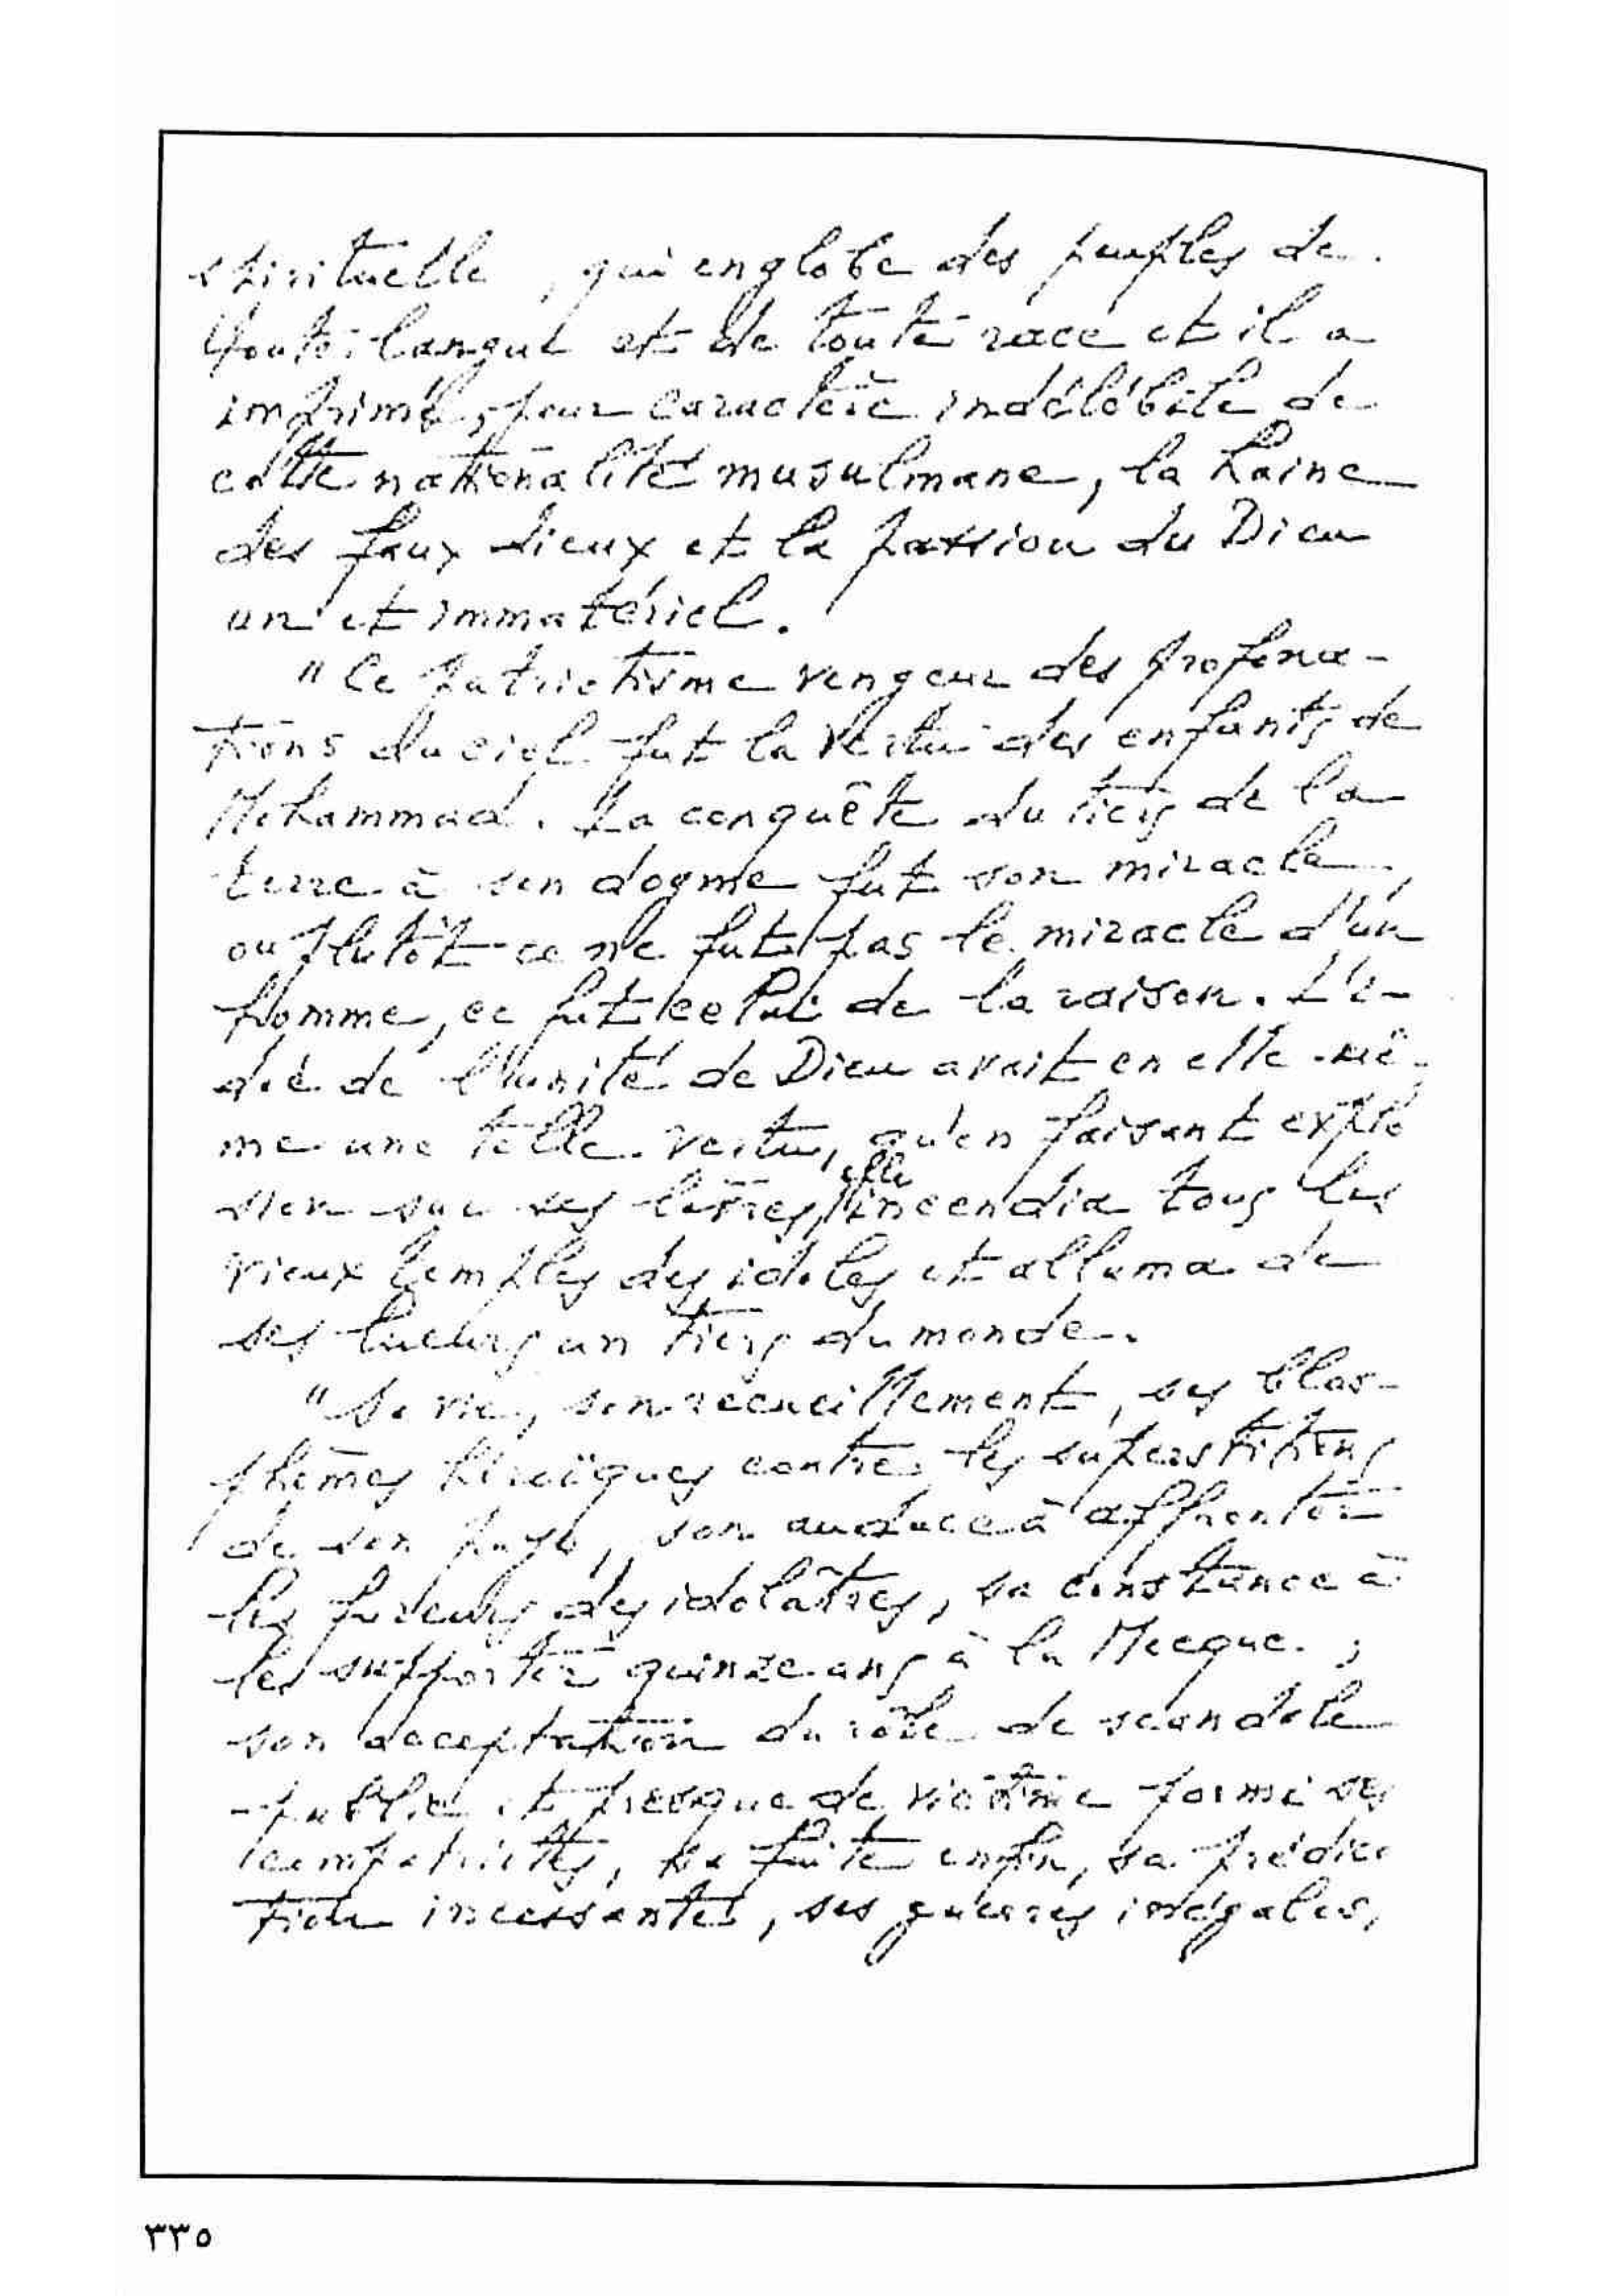 spirituelle, qui englobe des peuples de
toute langue et de toute race et il a
imprimé, pour caractère indélébile de
cette nationalité musulmane, la haine
des faux dieux et la passion du Dieu
un et immatériel.
"Ce patriotisme vengeur des profana-
tions du ciel fut la vertu des enfants de
Mohammad. La conquête du tiers de la
terre à son dogme fut son miracle,
ou plutôt ce ne fut pas le miracle d'un
homme, ce fut celui de la raison. L'i-
dée de l'unité de Dieu avait en elle-mê-
me une telle vertu, qu'en faisant explo
sion sur ses lèvres, elle incendia tous les
vieux temples des idoles et alluma de
ses lueurs un tiers du monde.
"Sa vie, son recueillement, ses blas-
phèmes héroïques contre les superstitions
de son pays, son audace à affronter
les fureurs des idolâtres, sa constance à
les supporter quinze ans à la Mecque,
son acceptation du rôle de scandale
public et presque de victime parmi ses
compatriotes, sa fuite enfin, sa prédica
tion incessante, ses guerres inégales,
٣٣٥